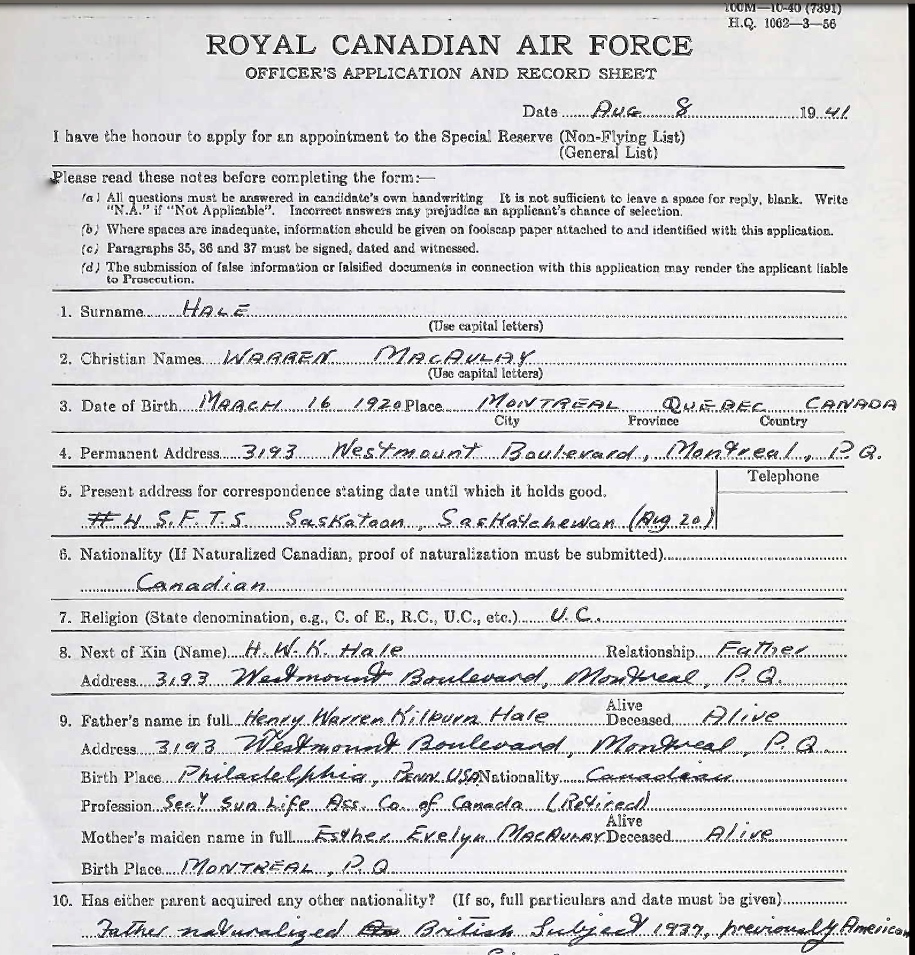 100M—10-40 (7391)
H.Q. 1062—3—56
ROYAL CANADIAN AIR FORCE
OFFICER'S APPLICATION AND RECORD SHEET
Date AUG 8 1941
I have the honour to apply for an appointment to the Special Reserve (Non-Flying List)
(General List)
Please read these notes before completing the form:—
(a) All questions must be answered in candidate's own handwriting It is not sufficient to leave a space for reply, blank. Write
"N.A." if "Not Applicable". Incorrect answers may prejudice an applicant's chance of selection.
(b) Where spaces are inadequate, information should be given on foolscap paper attached to and identified with this application.
(c) Paragraphs 35, 36 and 37 must be signed, dated and witnessed.
(d) The submission of false information or falsified documents in connection with this application may render the applicant liable
to Prosecution.
1. Surname HALE
(Use capital letters)
2. Christian Names WARREN MACAULAY
(Use capital letters)
3. Date of Birth MARCH 16 1920 Place MONTREAL QUEBEC CANADA
City Province Country
4. Permanent Address 3193 Westmount Boulevard, Montreal, P.Q.
Telephone
5. Present address for correspondence stating date until which it holds good.
#4 S.F.T.S. Saskatoon, Saskatchewan (Aug 20)
6. Nationality (If Naturalized Canadian, proof of naturalization must be submitted)
Canadian
7. Religion (State denomination, e.g., C. of E., R.C., U.C., etc.) U.C.
8. Next of Kin (Name) H. W. K. Hale Relationship Father
Address 3193 Westmount Boulevard, Montreal, P.Q.
9. Father's name in full Henry Warren Kilburn Hale Alive
Deceased Alive
Address 3193 Westmount Boulevard, Montreal, P.Q.
Birth Place Philadelphia, PENN. USA Nationality Canadian
Profession Sec'y Sun Life Ass. Co. of Canada (Retired)
Alive
Mother's maiden name in full Esther Evelyn MACAULAY Deceased Alive
Birth Place MONTREAL, P.Q.
10. Has either parent acquired any other nationality? (If so, full particulars and date must be given)
Father naturalized British Subject 1937, previously American